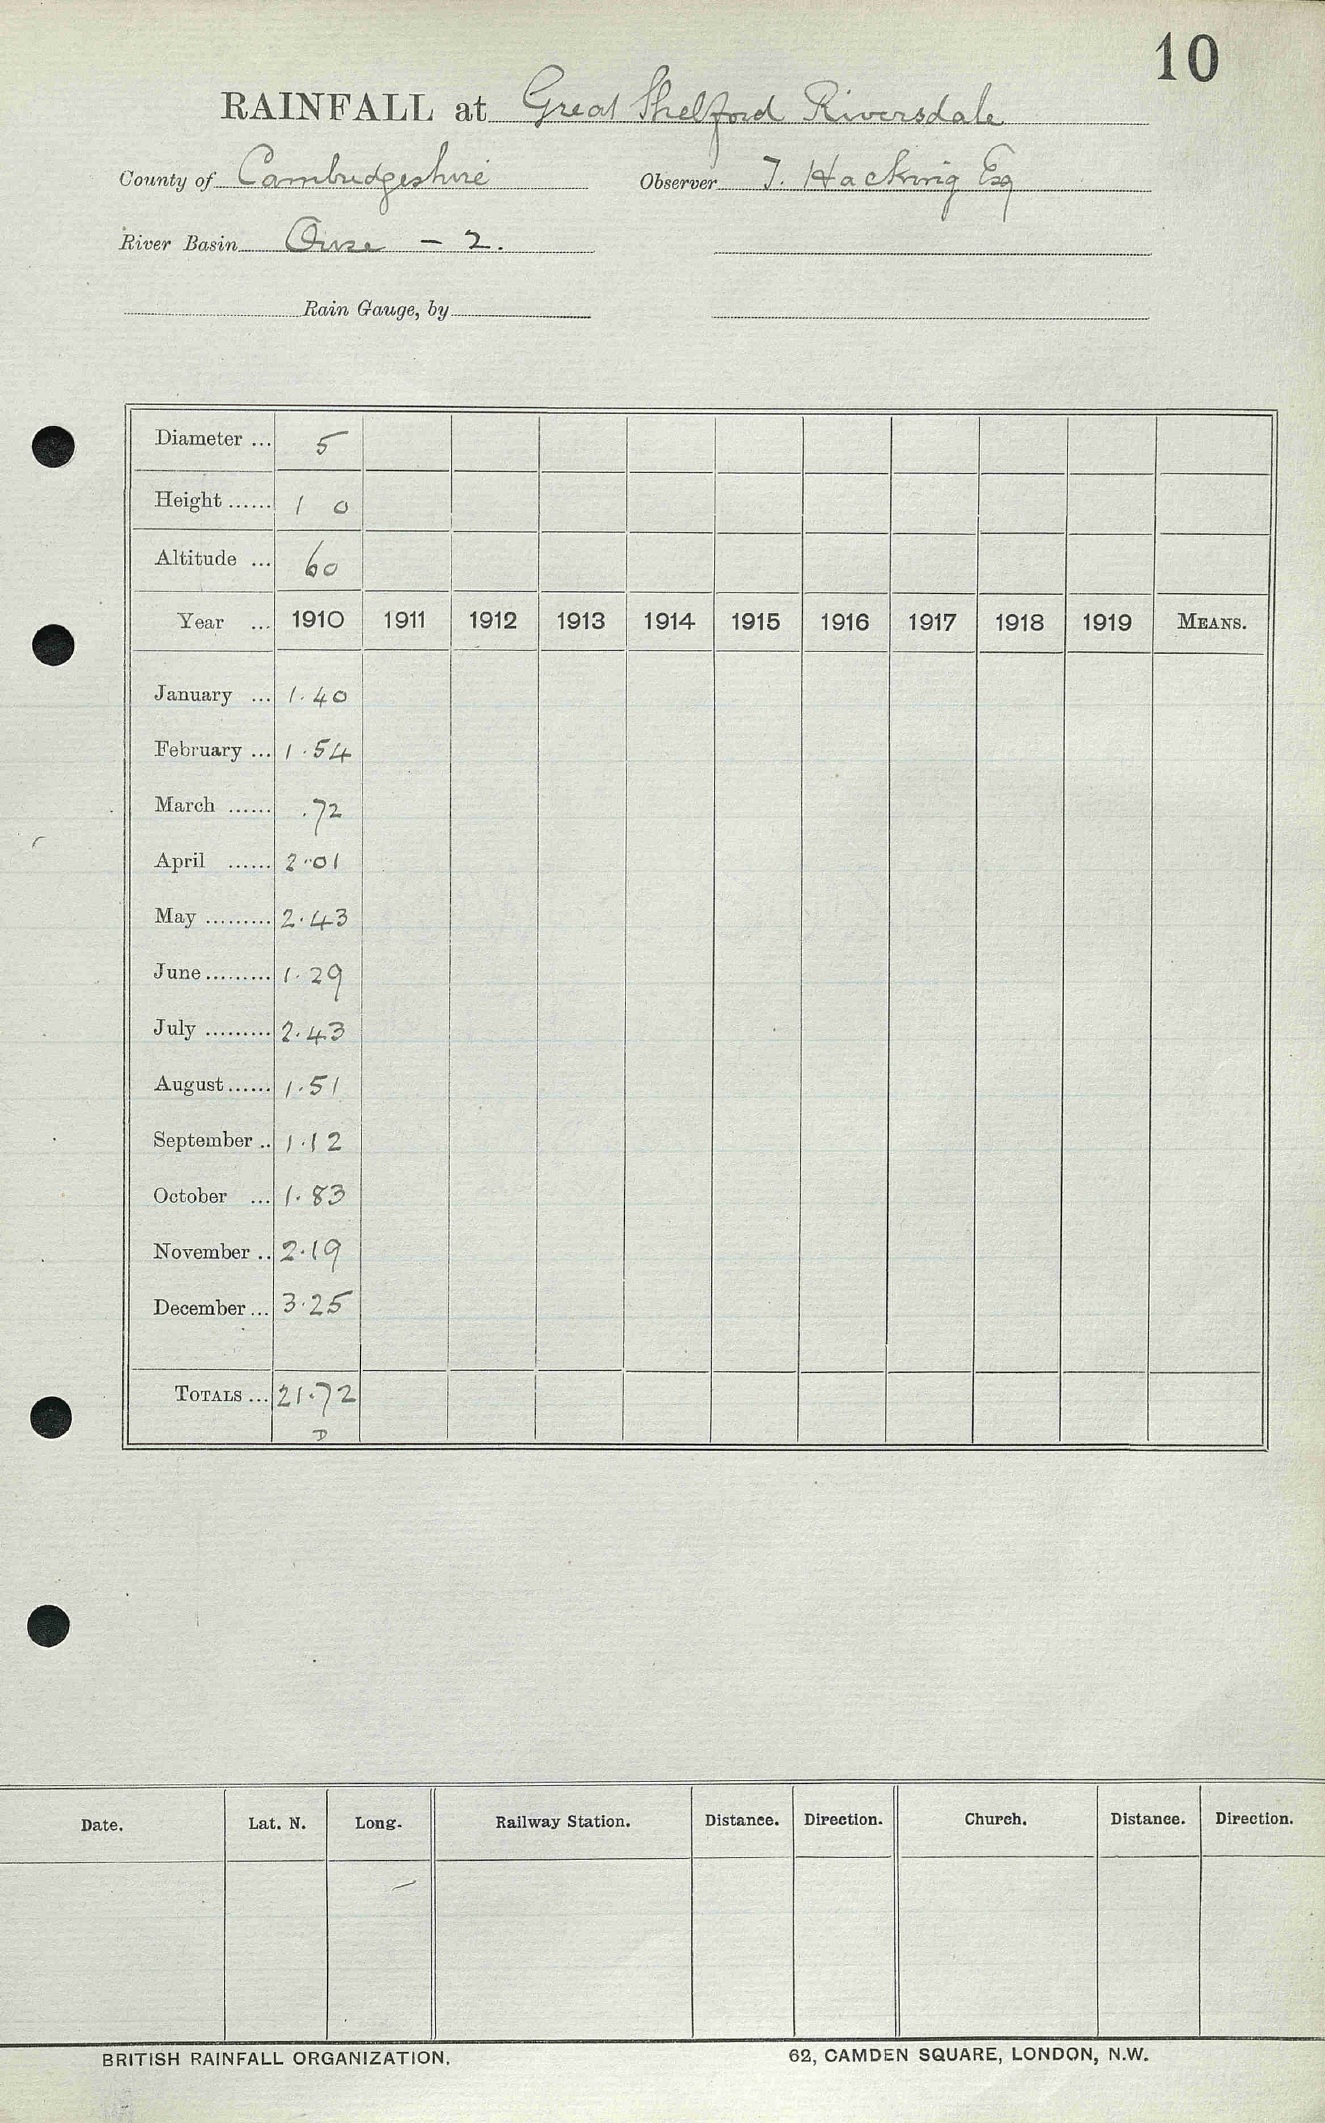 10
RAINFALL at Great Shelford Riversdale
County of Cambridgeshire Observer T. Hacking Esq
River Basin Ouse - 2.
Rain Gauge, by
Diameter ... 5
Height ...... 1 0
Altitude ... 60
Year ... 1910 1911 1912 1913 1914 1915 1916 1917 1918 1919 MEANS.
January ... 1.40
February ... 1.54
March ...... .72
April ...... 2.01
May ......... 2.43
June ......... 1.29
July ......... 2.43
August ...... 1.51
September .. 1.12
October ... 1.83
November .. 2.19
December ... 3.25
TOTALS ... 21.72
D
Date. Lat. N. Long. Railway Station. Distance. Direction. Church. Distance. Direction.
BRITISH RAINFALL ORGANIZATION. 62, CAMDEN SQUARE, LONDON, N.W.